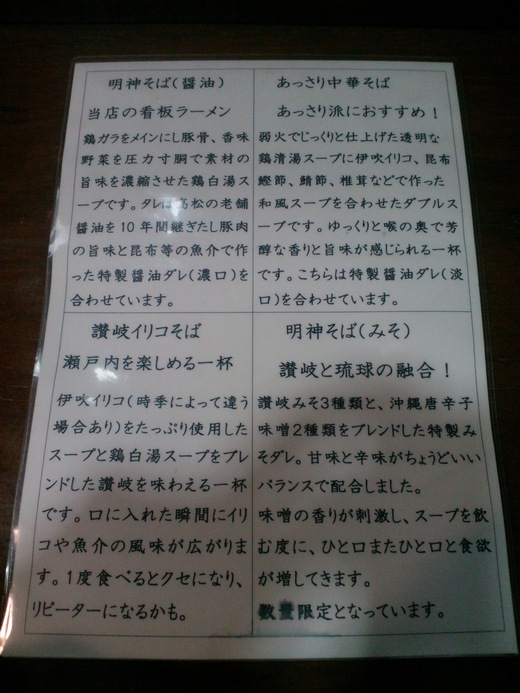 明神そば(醤油)
当店の看板ラーメン
鶏ガラをメインにし豚骨、香味
野菜を圧力寸胴で素材の
旨味を濃縮させた鶏白湯ス
ープです。タレは高松の老舗
醤油を10年間継ぎたし豚肉
の旨味と昆布等の魚介で作
った特製醤油ダレ(濃口)を
合わせています。
あっさり中華そば
あっさり派におすすめ！
弱火でじっくりと仕上げた透明な
鶏清湯スープに伊吹イリコ、昆布
鰹節、鯖節、椎茸などで作った
和風スープを合わせたダブルス
ープです。ゆっくりと喉の奥で芳
醇な香りと旨味が感じられる一杯
です。こちらは特製醤油ダレ(淡
口)を合わせています。
讃岐イリコそば
瀬戸内を楽しめる一杯
伊吹イリコ(時季によって違う
場合あり)をたっぷり使用した
スープと鶏白湯スープをブレ
ンドした讃岐を味わえる一杯
です。口に入れた瞬間にイリ
コや魚介の風味が広がりま
す。1度食べるとクセになり、
リピーターになるかも。
明神そば(みそ)
讃岐と琉球の融合！
讃岐みそ3種類と、沖縄唐辛子
味噌2種類をブレンドした特製み
そダレ。甘味と辛味がちょうどいい
バランスで配合しました。
味噌の香りが刺激し、スープを飲
む度に、ひと口またひと口と食欲
が増してきます。
数量限定となっています。